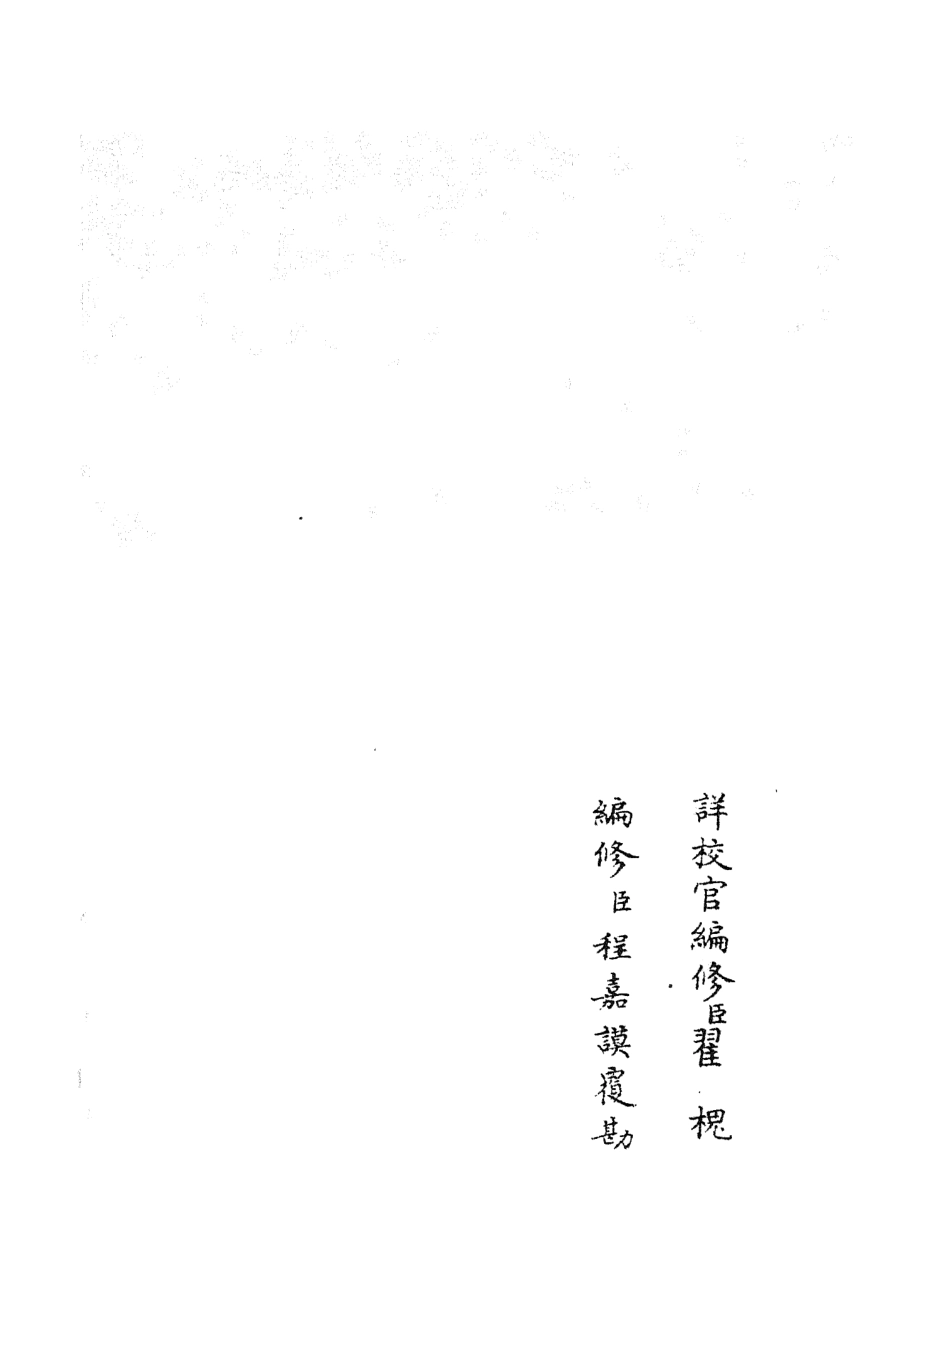 詳校官編修臣翟槐
編修臣程嘉謨覆勘